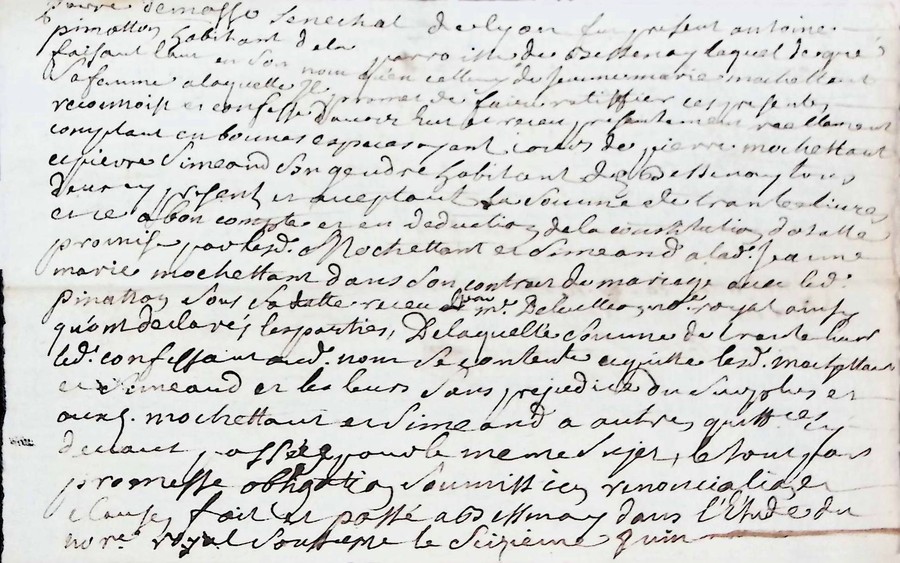 senechal de lyon fu present antoine
pinatton habitant de la parroisse de Bessenay lequel de gré
faisant tant en son nom qu'en celluy de Jeanne marie mochettant
sa femme a laquelle Il promet de faire ratiffier ces presentes
reconnoist et confesse d'avoir heu et receu presentement reellement
comptant en bonnes especes ayant cours de pierre mochettant
et pierre Simeand son gendre habitant de Bessenay tous
deux cy present et acceptant la somme de trante livres
et ce a bon compte et en deduction de la constitution dotalle
promise par lesd. Mochettant et Simeand a lad. Jeanne
marie mochettant dans son contrat de mariage avec led.
pinatton sous sa datte receu par me. nore. royal ainsy
qu'ont declaré les parties, De laquelle somme de trante livres
led. confessant aud. nom se contente et quitte lesd. mochettant
et Simeand et les leurs sans prejudice du surplus et
auxd. mochettant et Simeand a autres quittces. cy
devant passée pour le meme sujet, le tout par
promesse obligation soumission renonciation et
clause, fait et passé a Bessenay dans l'Etude du
nore. royal soussigné le seizieme Juin